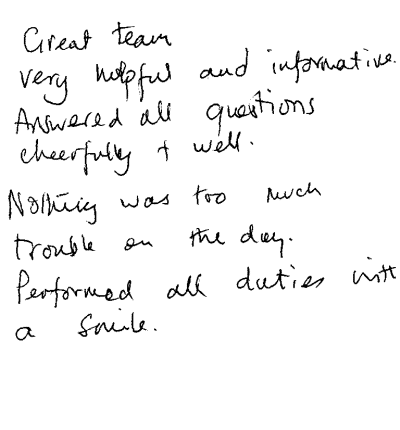 Great team
very helpful and informative.
Answered all questions
cheerfully + well.
Nothing was too much
trouble on the day.
Performed all duties with
a smile.